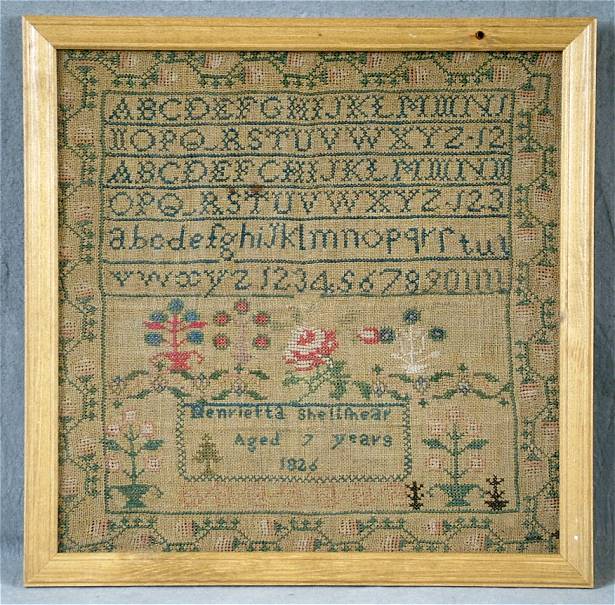 ABCDEFGHIJKLMNN
OPQRSTUVWXYZ·12
ABCDEFGHIJKLMNN
OPQRSTUVWXYZ·123
abcdefghijklmnopqrr
vwxyz1234567891011
Henrietta Shellmear
Aged 7 years
1826